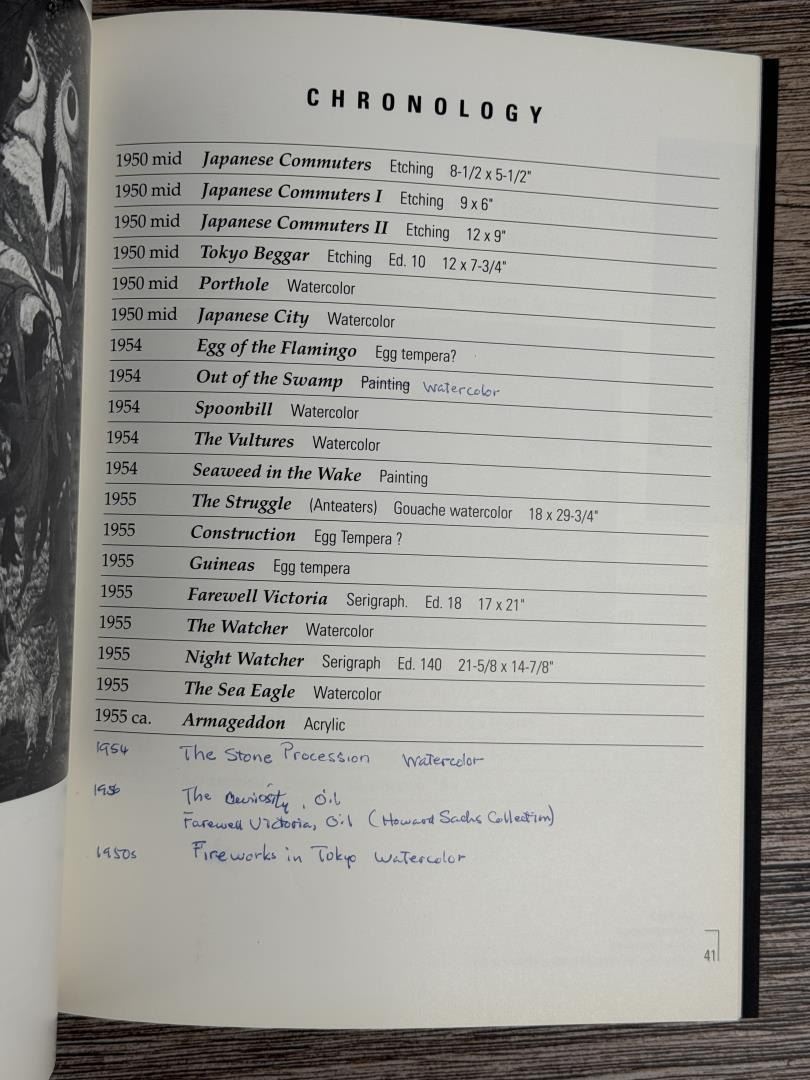 CHRONOLOGY
1950 mid Japanese Commuters Etching 8-1/2 x 5-1/2"
1950 mid Japanese Commuters I Etching 9 x 6"
1950 mid Japanese Commuters II Etching 12 x 9"
1950 mid Tokyo Beggar Etching Ed. 10 12 x 7-3/4"
1950 mid Porthole Watercolor
1950 mid Japanese City Watercolor
1954 Egg of the Flamingo Egg tempera?
1954 Out of the Swamp Painting Watercolor
1954 Spoonbill Watercolor
1954 The Vultures Watercolor
1954 Seaweed in the Wake Painting
1955 The Struggle (Anteaters) Gouache watercolor 18 x 29-3/4"
1955 Construction Egg Tempera ?
1955 Guineas Egg tempera
1955 Farewell Victoria Serigraph. Ed. 18 17 x 21"
1955 The Watcher Watercolor
1955 Night Watcher Serigraph Ed. 140 21-5/8 x 14-7/8"
1955 The Sea Eagle Watercolor
1955 ca. Armageddon Acrylic
1954 The Stone Procession Watercolor
1956 The Curiosity, Oil
Farewell Victoria, Oil (Howard Sachs Collection)
1950s Fireworks in Tokyo Watercolor
41